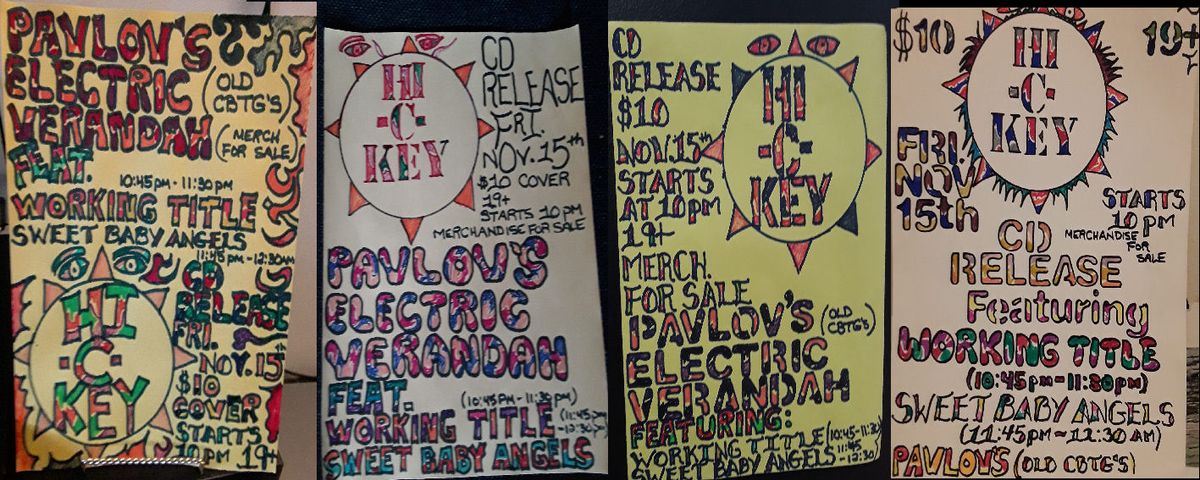 PAVLOV'S
ELECTRIC
(OLD
CBTG'S)
VERANDAH
(MERCH
FOR SALE)
FEAT.
10:45pm - 11:30pm
WORKING TITLE
SWEET BABY ANGELS
11:45pm - 12:30am
HI
-C-
KEY
CD
RELEASE
FRI.
NOV. 15
$10
COVER
STARTS
10pm 19+
HI
-C-
KEY
CD
RELEASE
FRI.
NOV. 15th
$10 COVER
19+
STARTS 10pm
MERCHANDISE FOR SALE
PAVLOV'S
ELECTRIC
VERANDAH
FEAT.
(10:45pm - 11:30pm)
WORKING TITLE
(11:45pm
- 12:30am)
SWEET BABY ANGELS
CD
RELEASE
$10
NOV. 15th
STARTS
AT 10pm
19+
MERCH.
FOR SALE
HI
-C-
KEY
PAVLOV'S
(OLD
CBTG's)
ELECTRIC
VERANDAH
FEATURING:
WORKING TITLE (10:45-11:30)
SWEET BABY ANGELS (11:45
-12:30)
$10
19+
HI
-C-
KEY
FRI.
NOV
15th
STARTS
10pm
MERCHANDISE
FOR
SALE
CD
RELEASE
Featuring
WORKING TITLE
(10:45pm-11:30pm)
SWEET BABY ANGELS
(11:45pm-12:30 AM)
PAVLOV'S (OLD CBTG's)